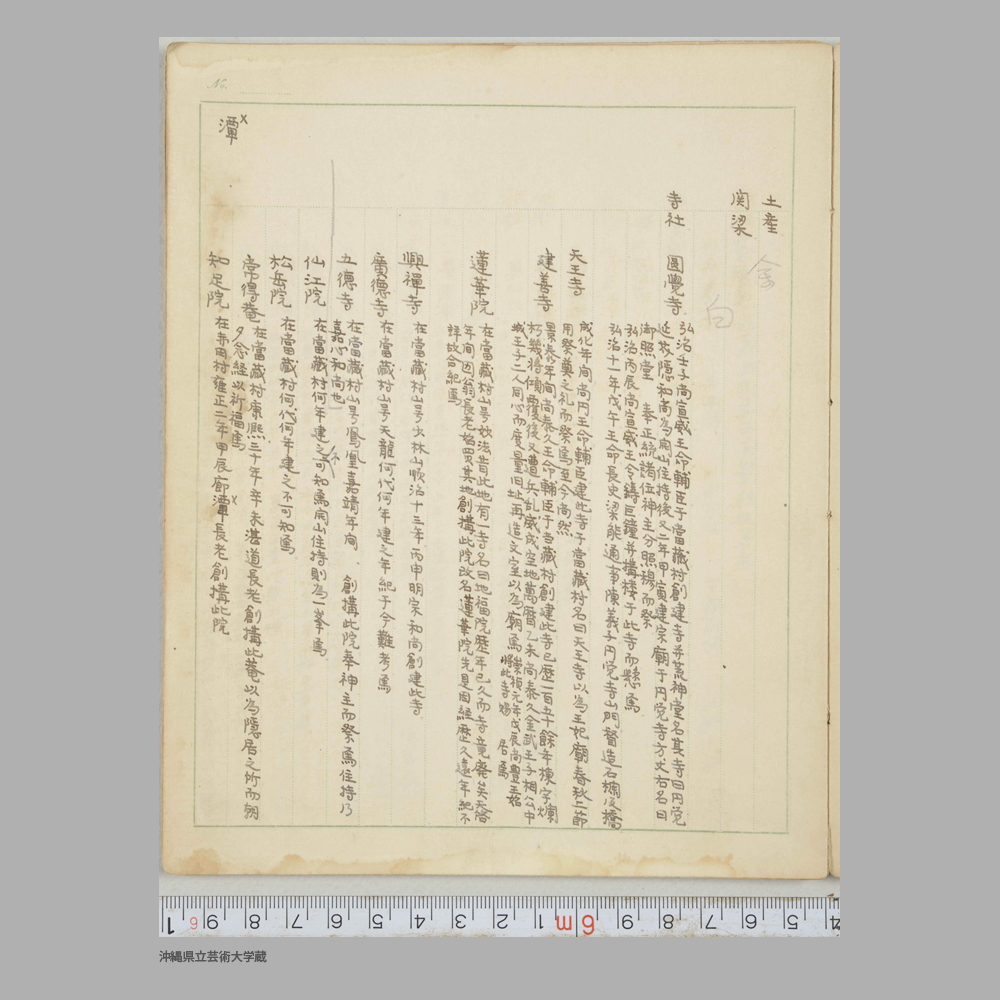 No.
土産
関梁
寺社 圓覺寺
弘治壬子尚宣威王命輔臣于當蔵村創建寺并荒神堂名其寺曰円覚
延芥隠和尚為開山住持後又二年甲寅建宗廟于円覚寺方丈右名曰
御照堂 奉正統諸位神主分照穆而祭
弘治丙辰尚宣威王令鋳巨鐘并搆楼于此寺而懸焉
弘治十一年戊午王命長史梁能通事陳義子円覚寺山門督造石欄及橋
天王寺
成化年間尚円王命輔臣建此寺于當蔵村名曰天王寺以為王妃廟春秋二節
用祭奠之礼而祭焉至今尚然
建善寺
景泰年間尚泰久王命輔臣于当蔵村創建此寺已歴一百五十餘年棟宇爛
朽幾将傾覆後又遭兵乱咸成空地萬暦乙未尚泰久金武王子相公中
城王子二人同心而度量旧址再造文室以為廟焉崇禎元年戊辰尚豊王始
将此寺賜 居焉
蓮華院
在當蔵村山号妙法昔此地有一寺名曰地福院歴年已久而寺竟廃矣天啓
年間因翁長老始買其地創搆此院改名蓮華院先是因経歴久遠年紀不
詳故合紀焉
興禅寺 在當蔵村山号少林山順治十三年丙申明宗和尚創建此寺
廣徳寺 在當蔵村山号天龍何代何年建之年紀于今難考焉
五徳寺 在當蔵村山号鳳凰嘉靖年間 創搆此院奉神主而祭焉住持乃
嘉心和尚也
仙江院 在當蔵村何年建之可知焉開山住持則為一峯焉
不
松岳院 在當蔵村何代何年建之不可知焉
常得菴 在當蔵村康熙三十年辛未湛道長老創搆此菴以為隠居之所而朝
夕念経以祈福焉
知足院 在赤田村雍正二年甲辰廊潭長老創搆此院
潭x
白
沖縄県立芸術大学蔵